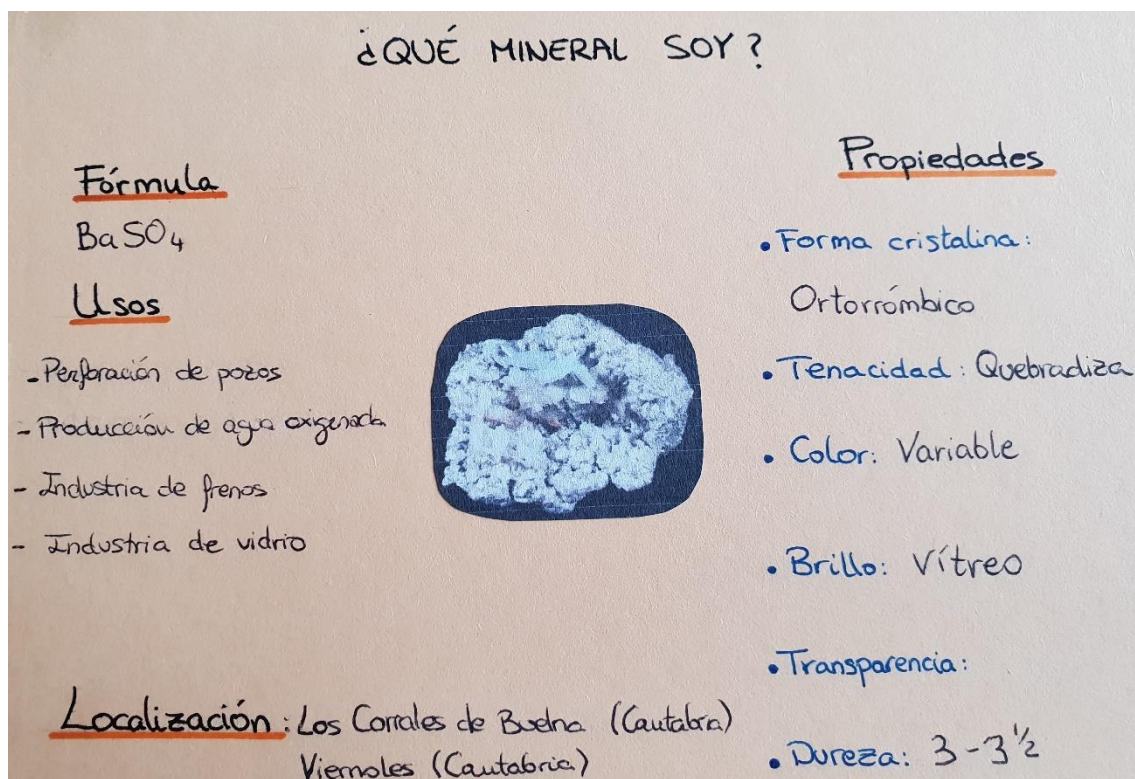 ¿QUÉ MINERAL SOY?
Fórmula
BaSO4
Usos
- Perforación de pozos
- Producción de agua oxigenada
- Industria de frenos
- Industria de vidrio
Localización: Los Corrales de Buelna (Cantabria)
Viernoles (Cantabria)
Propiedades
• Forma cristalina:
Ortorrómbico
• Tenacidad: Quebradiza
• Color: Variable
• Brillo: Vítreo
• Transparencia:
• Dureza: 3-3½